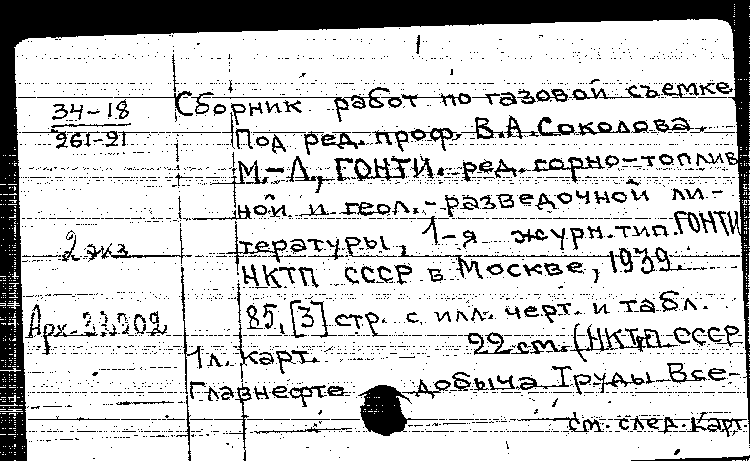 34-18
261-21
Сборник работ по газовой съемке
Под ред. проф. В.А.Соколова.
М.-Л., ГОНТИ. ред. горно-топлив
ной и геол.-разведочной ли-
2 экз
тературы, 1-я журн.тип.ГОНТИ
НКТП СССР в Москве, 1939.
Арх.
85,[3] стр. с илл. черт. и табл.
1л. карт. 22 см. (НКТП СССР
Главнефте добыча Труды Все-
см. след. карт.